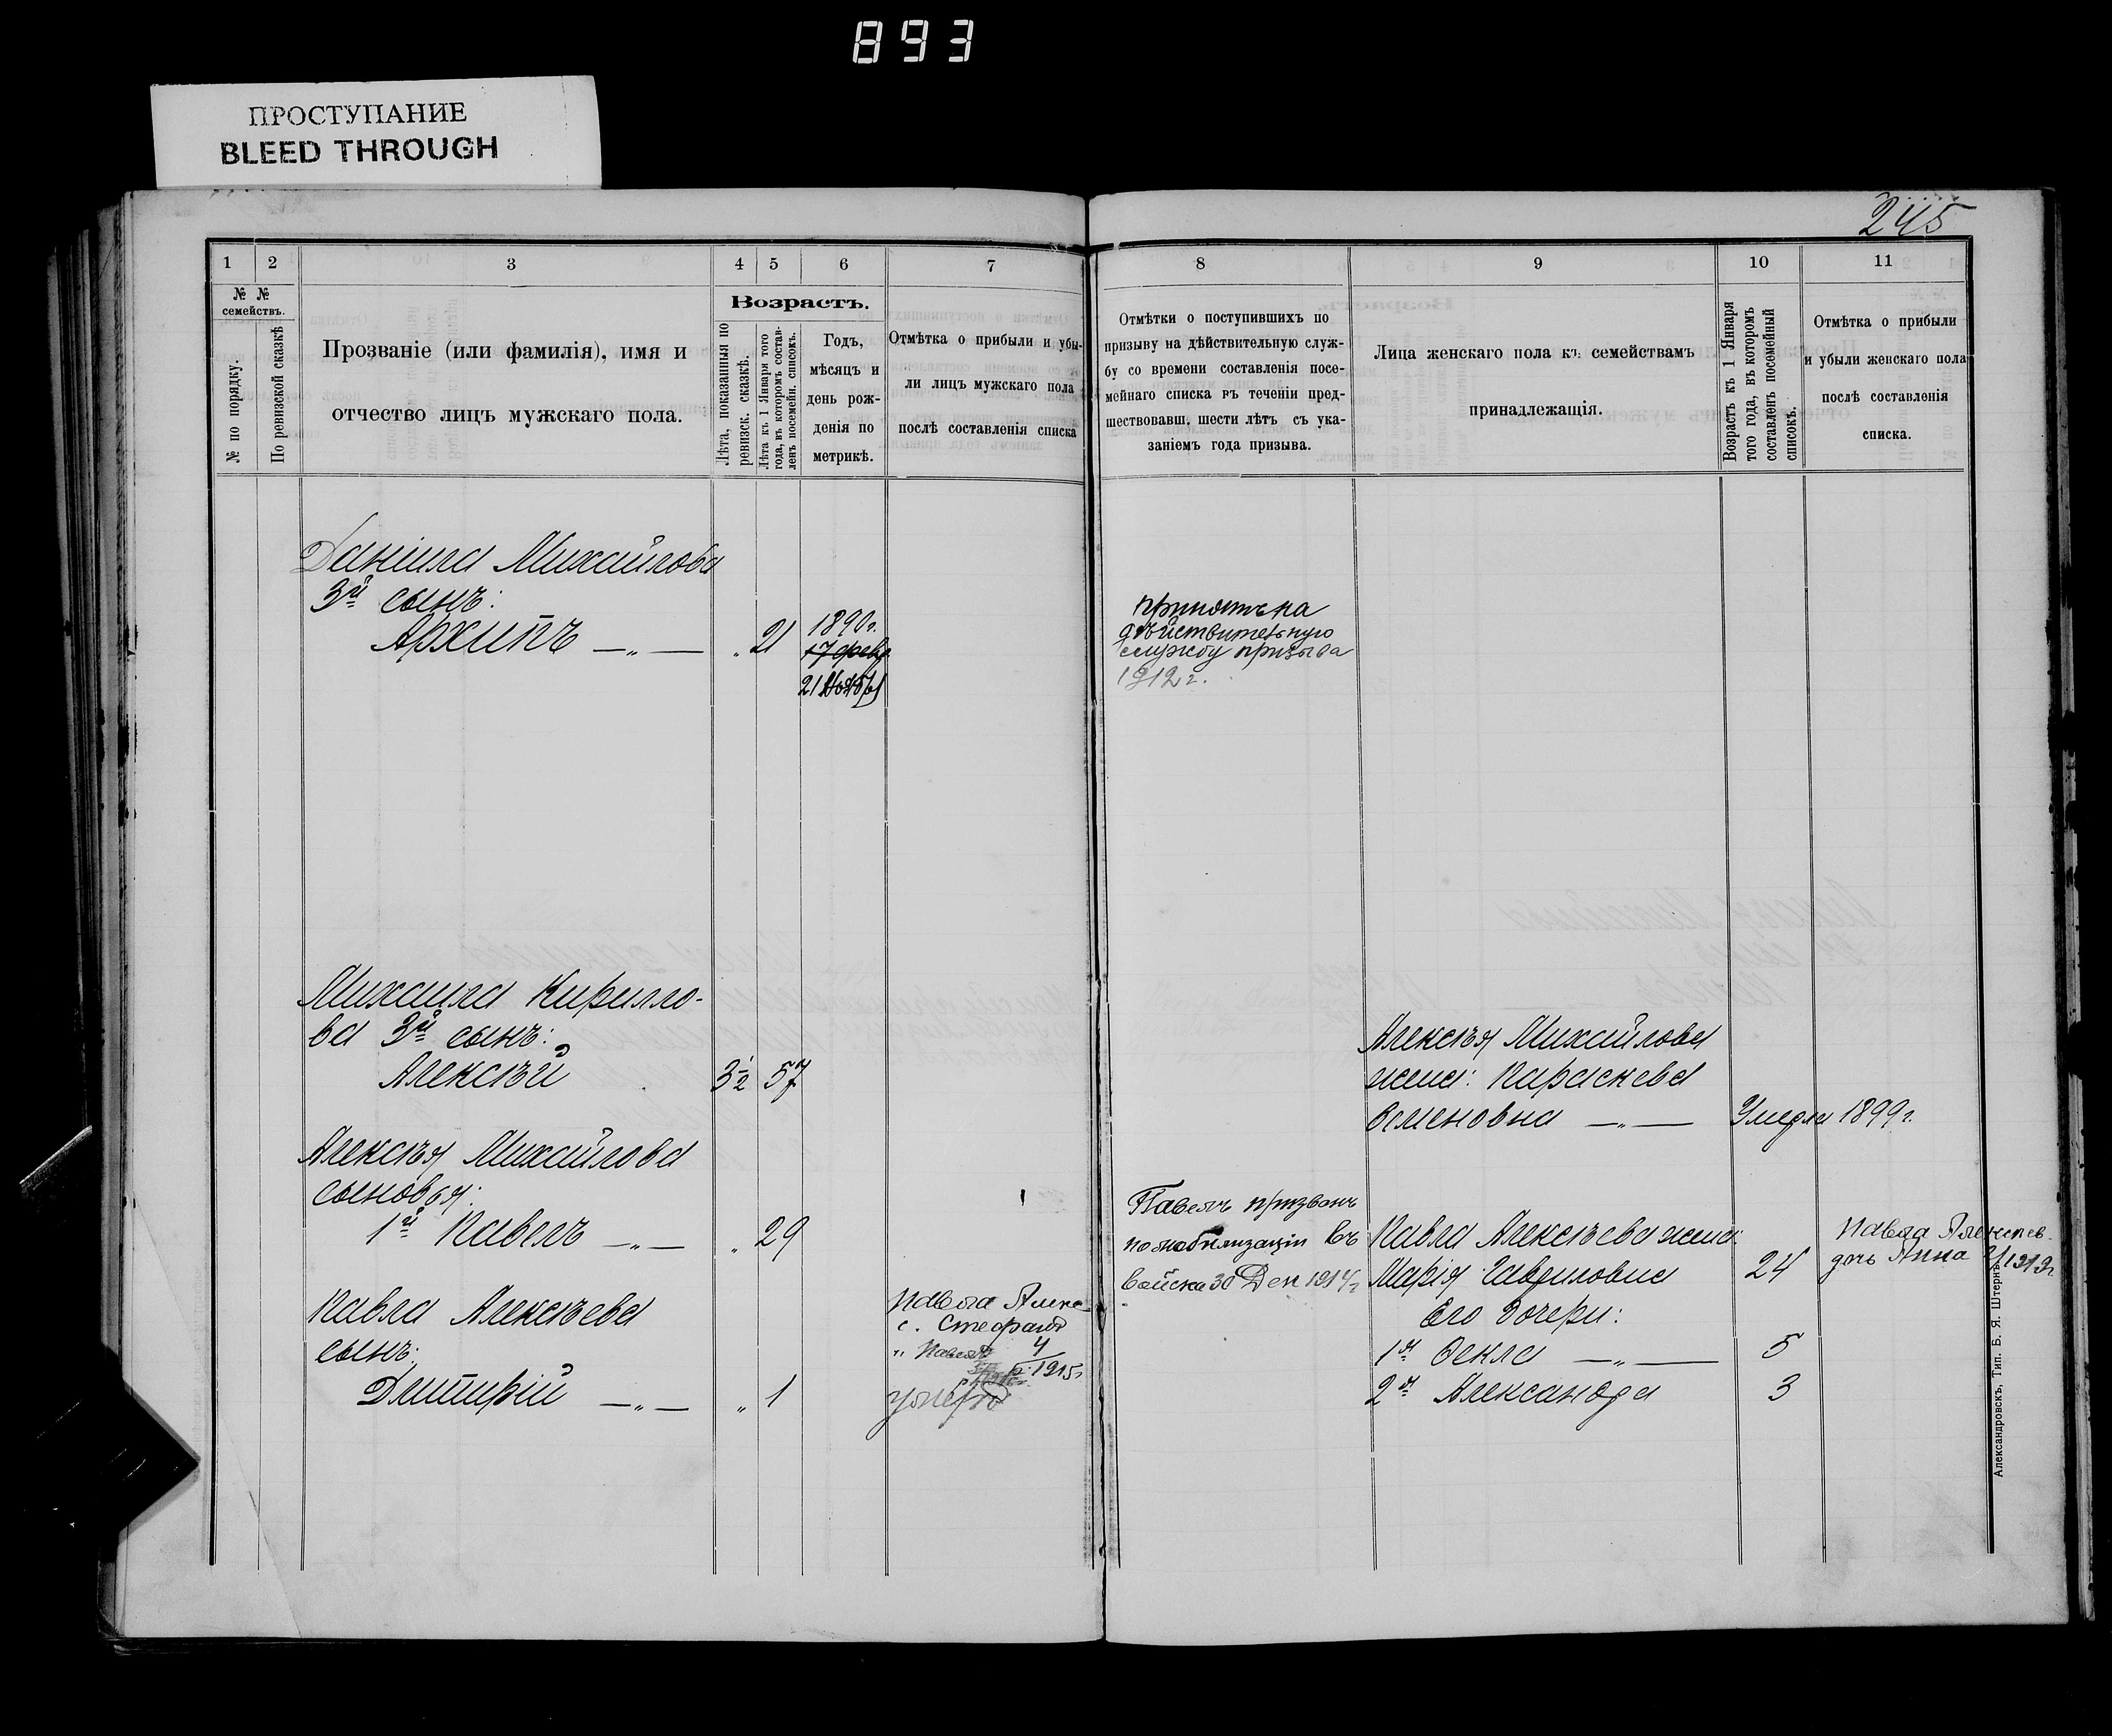 893
ПРОСТУПАНИЕ
BLEED THROUGH
245
1 2 3 4 5 6 7
№ №
семействъ.
№ по порядку.
По ревизской сказкѣ
Прозваніе (или фамилія), имя и
отчество лицъ мужскаго пола.
Возрастъ.
Лѣта, показанныя по
ревизск. сказкѣ.
Лѣта къ 1 Января того
года, въ которомъ состав-
ленъ посемейн. списокъ.
Годъ,
мѣсяцъ и
день рож-
денія по
метрикѣ.
Отмѣтка о прибыли и убы-
ли лицъ мужскаго пола
послѣ составленія списка
Даніила Михайлова
3й сынъ:
Архипъ —„— „ 21
1890г.
17 февр
21
Михаила Кирилло-
ва 3й сынъ:
Алексѣй 3½ 57
Алексѣя Михайлова
сыновья:
1й Павелъ —„— „ 29
Павла Алексѣева
сынъ:
Дмитрій —„— „ 1
Павла Алекс
с. Стефанъ
„ Павелъ 4
р. 1915г
умеръ
8 9 10 11
Отмѣтки о поступившихъ по
призыву на дѣйствительную служ-
бу со времени составленія посе-
мейнаго списка въ теченіи пред-
шествовавш. шести лѣтъ съ ука-
заніемъ года призыва.
Лица женскаго пола къ семействамъ
принадлежащія.
Возрастъ къ 1 Января
того года, въ которомъ
составленъ посемейный
списокъ.
Отмѣтка о прибыли
и убыли женскаго пола
послѣ составленія
списка.
принятъ на
дѣйствительную
службу призыва
1912г.
Алексѣя Михайлова
жена: Параскева
Семеновна —„— Умерла 1899г.
Павелъ призванъ
по мобилизаціи въ
войска 30 Дек 1914г
Павла Алексѣева жена:
Марія Гавриловна 24
Его дочери:
1я Ѳекла —„— 5
2я Александра 3
Павла Алексѣев.
дочь Анна 1913г
Александровскъ, Тип. Б. Я. Штернъ.